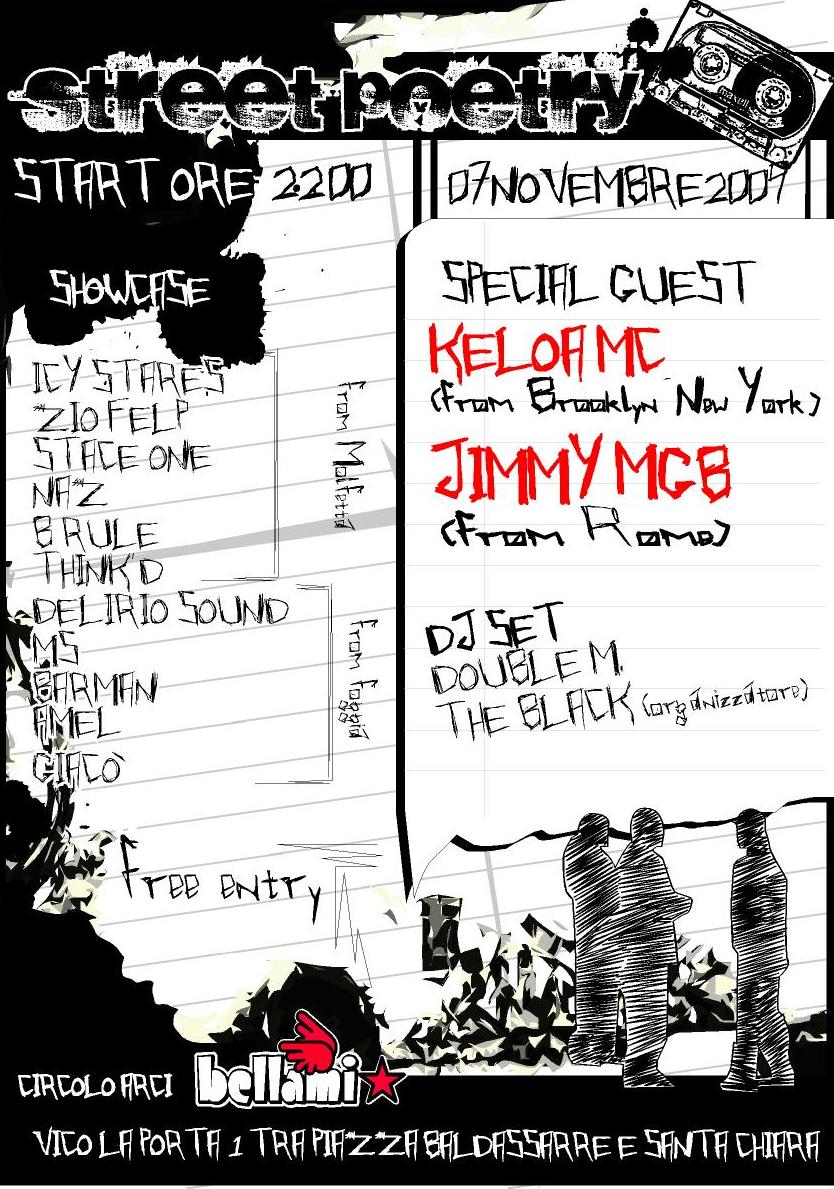 street poetry
START ORE 2200
07 NOVEMBRE 2009
SHOWCASE
ICY STARES
ZIO FELP
STACE ONE
NAZ
BRULE
THINK'D
from Molfetta
DELIRIO SOUND
MS
BARMAN
AMEL
GIACÒ
from foggia
free entry
SPECIAL GUEST
KELOA MC
(from Brooklyn New York)
JIMMY MGB
(from Rome)
DJ SET
DOUBLE M.
THE BLACK (organizzatore)
CIRCOLO ARCI bellami
VICO LA PORTA 1 TRA PIAZZA BALDASSARRE E SANTA CHIARA